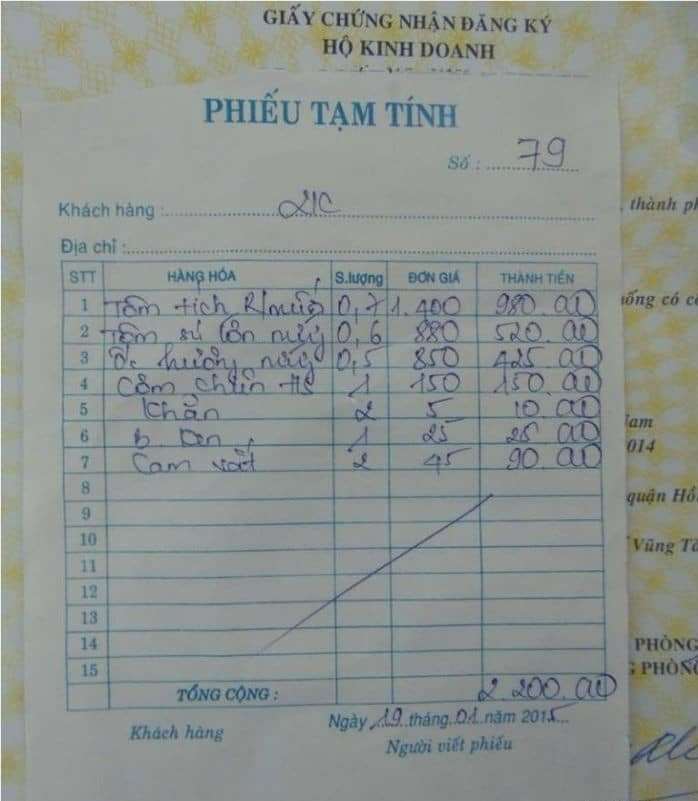 GIẤY CHỨNG NHẬN ĐĂNG KÝ
HỘ KINH DOANH
PHIẾU TẠM TÍNH
Số : 79
Khách hàng : 21C
, thành ph
Địa chỉ :
STT HÀNG HÓA S.lượng ĐƠN GIÁ THÀNH TIỀN
1 Tôm tích R/muối 0,7 1.400 980.00
2 Tôm sú lớn nướng 0,6 880 520.00
3 Ốc hương nướng 0,5 850 425.00
4 Cơm chiên HS 1 150 150.00
5 Khăn 2 5 10.00
6 b 1 25 25.00
7 Cam vắt 2 45 90.00
8
9
10
11
12
13
14
15
TỔNG CỘNG : 2.200.00
Ngày 19 tháng 01 năm 2015
Khách hàng Người viết phiếu
ống có cồ
Nam
2014
quận Hồ
Vũng Tà
PHÒNG
G PHÒNG